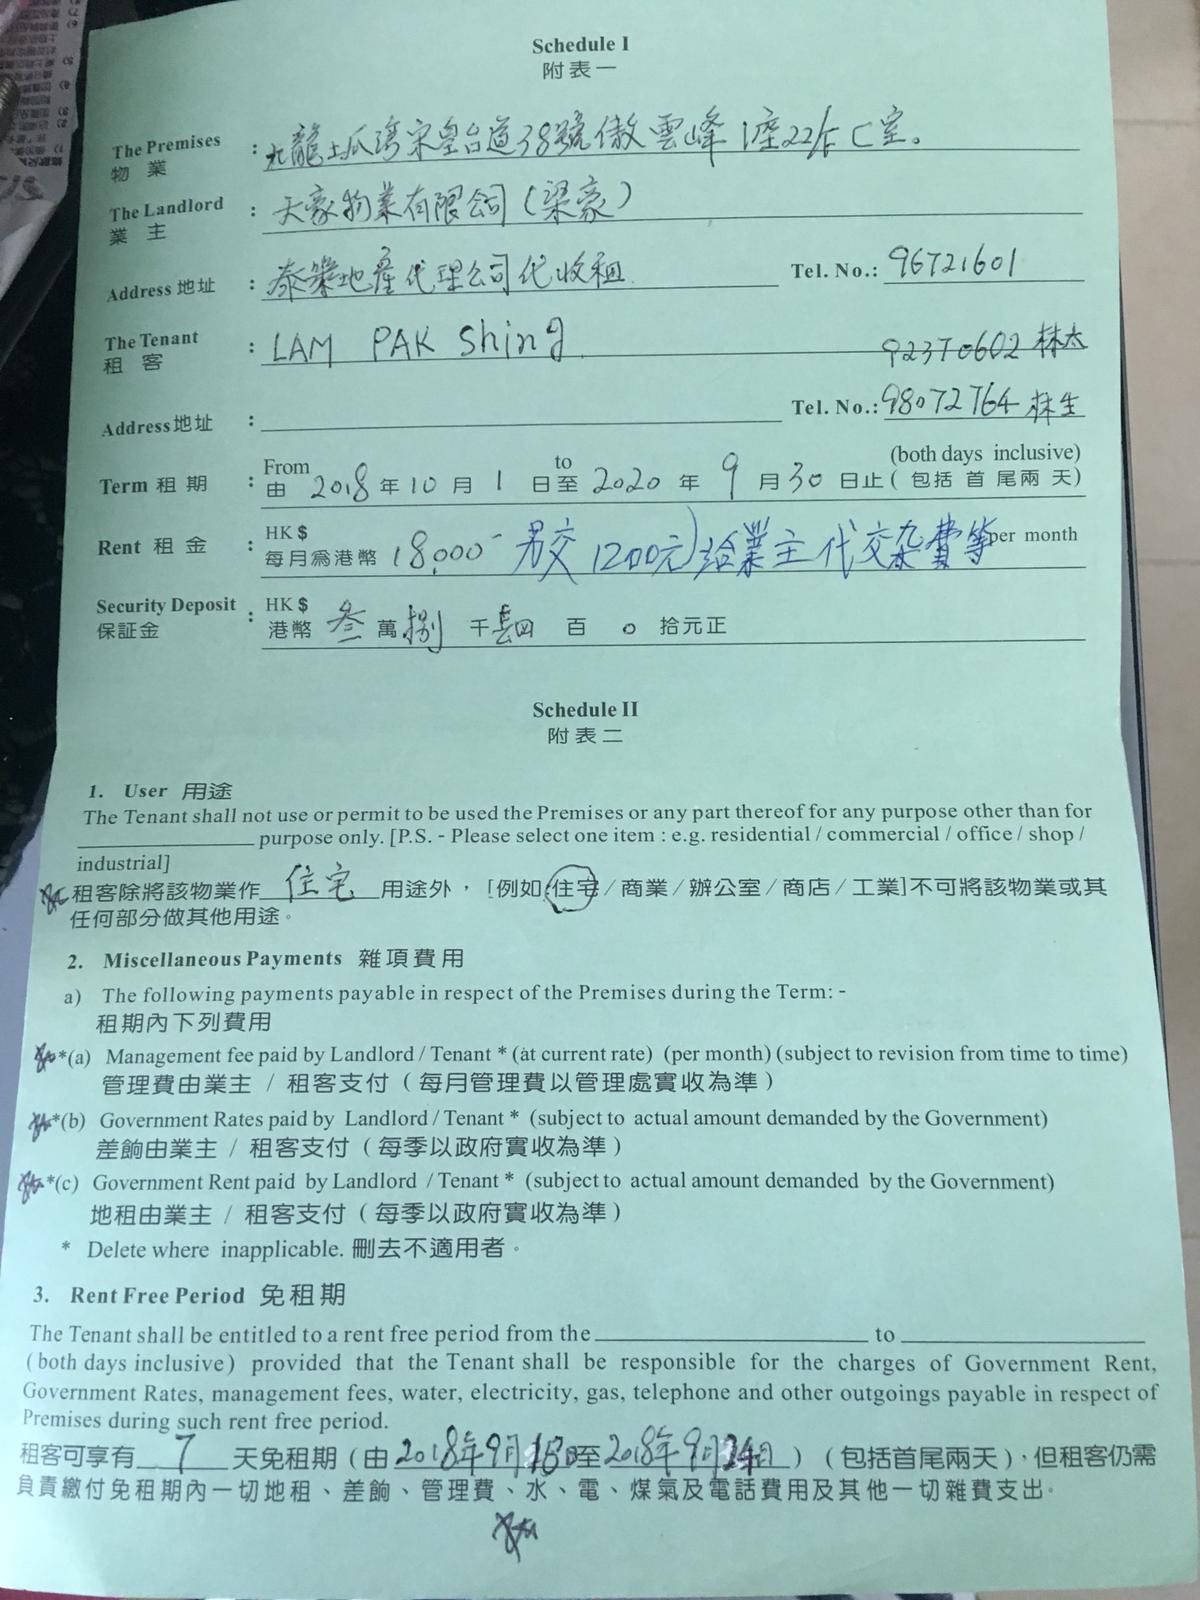 Schedule I
附表一
The Premises : 九龍土瓜灣宋皇台道38號傲雲峰1座22/F C室。
物業
The Landlord : 天豪物業有限公司(梁豪)
業主
Address 地址 : 泰築地產代理公司代收租. Tel. No.: 96721601
The Tenant : LAM PAK Shing. 92370602 林太
租客
Address 地址 : Tel. No.: 98072764 林生
From to (both days inclusive)
Term 租期 : 由 2018 年 10 月 1 日至 2020 年 9 月 30 日止 (包括首尾兩天)
HK$
Rent 租金 : 每月為港幣 18,000- 另交1200元)給業主代交杂費等 per month
Security Deposit : HK$
保証金 港幣 叁 萬 捌 千 四 百 0 拾元正
Schedule II
附表二
1. User 用途
The Tenant shall not use or permit to be used the Premises or any part thereof for any purpose other than for
purpose only. [P.S. - Please select one item : e.g. residential / commercial / office / shop /
industrial]
租客除將該物業作 住宅 用途外，[例如:住宅/商業/辦公室/商店/工業]不可將該物業或其
任何部分做其他用途。
2. Miscellaneous Payments 雜項費用
a) The following payments payable in respect of the Premises during the Term: -
租期內下列費用
*(a) Management fee paid by Landlord / Tenant * (at current rate) (per month) (subject to revision from time to time)
管理費由業主 / 租客支付（每月管理費以管理處實收為準）
*(b) Government Rates paid by Landlord / Tenant * (subject to actual amount demanded by the Government)
差餉由業主 / 租客支付（每季以政府實收為準）
*(c) Government Rent paid by Landlord / Tenant * (subject to actual amount demanded by the Government)
地租由業主 / 租客支付（每季以政府實收為準）
* Delete where inapplicable. 刪去不適用者。
3. Rent Free Period 免租期
The Tenant shall be entitled to a rent free period from the to
(both days inclusive) provided that the Tenant shall be responsible for the charges of Government Rent,
Government Rates, management fees, water, electricity, gas, telephone and other outgoings payable in respect of
Premises during such rent free period.
租客可享有 7 天免租期（由 2018年9月 日至 2018年9月24日）（包括首尾兩天），但租客仍需
負責繳付免租期內一切地租、差餉、管理費、水、電、煤氣及電話費用及其他一切雜費支出。